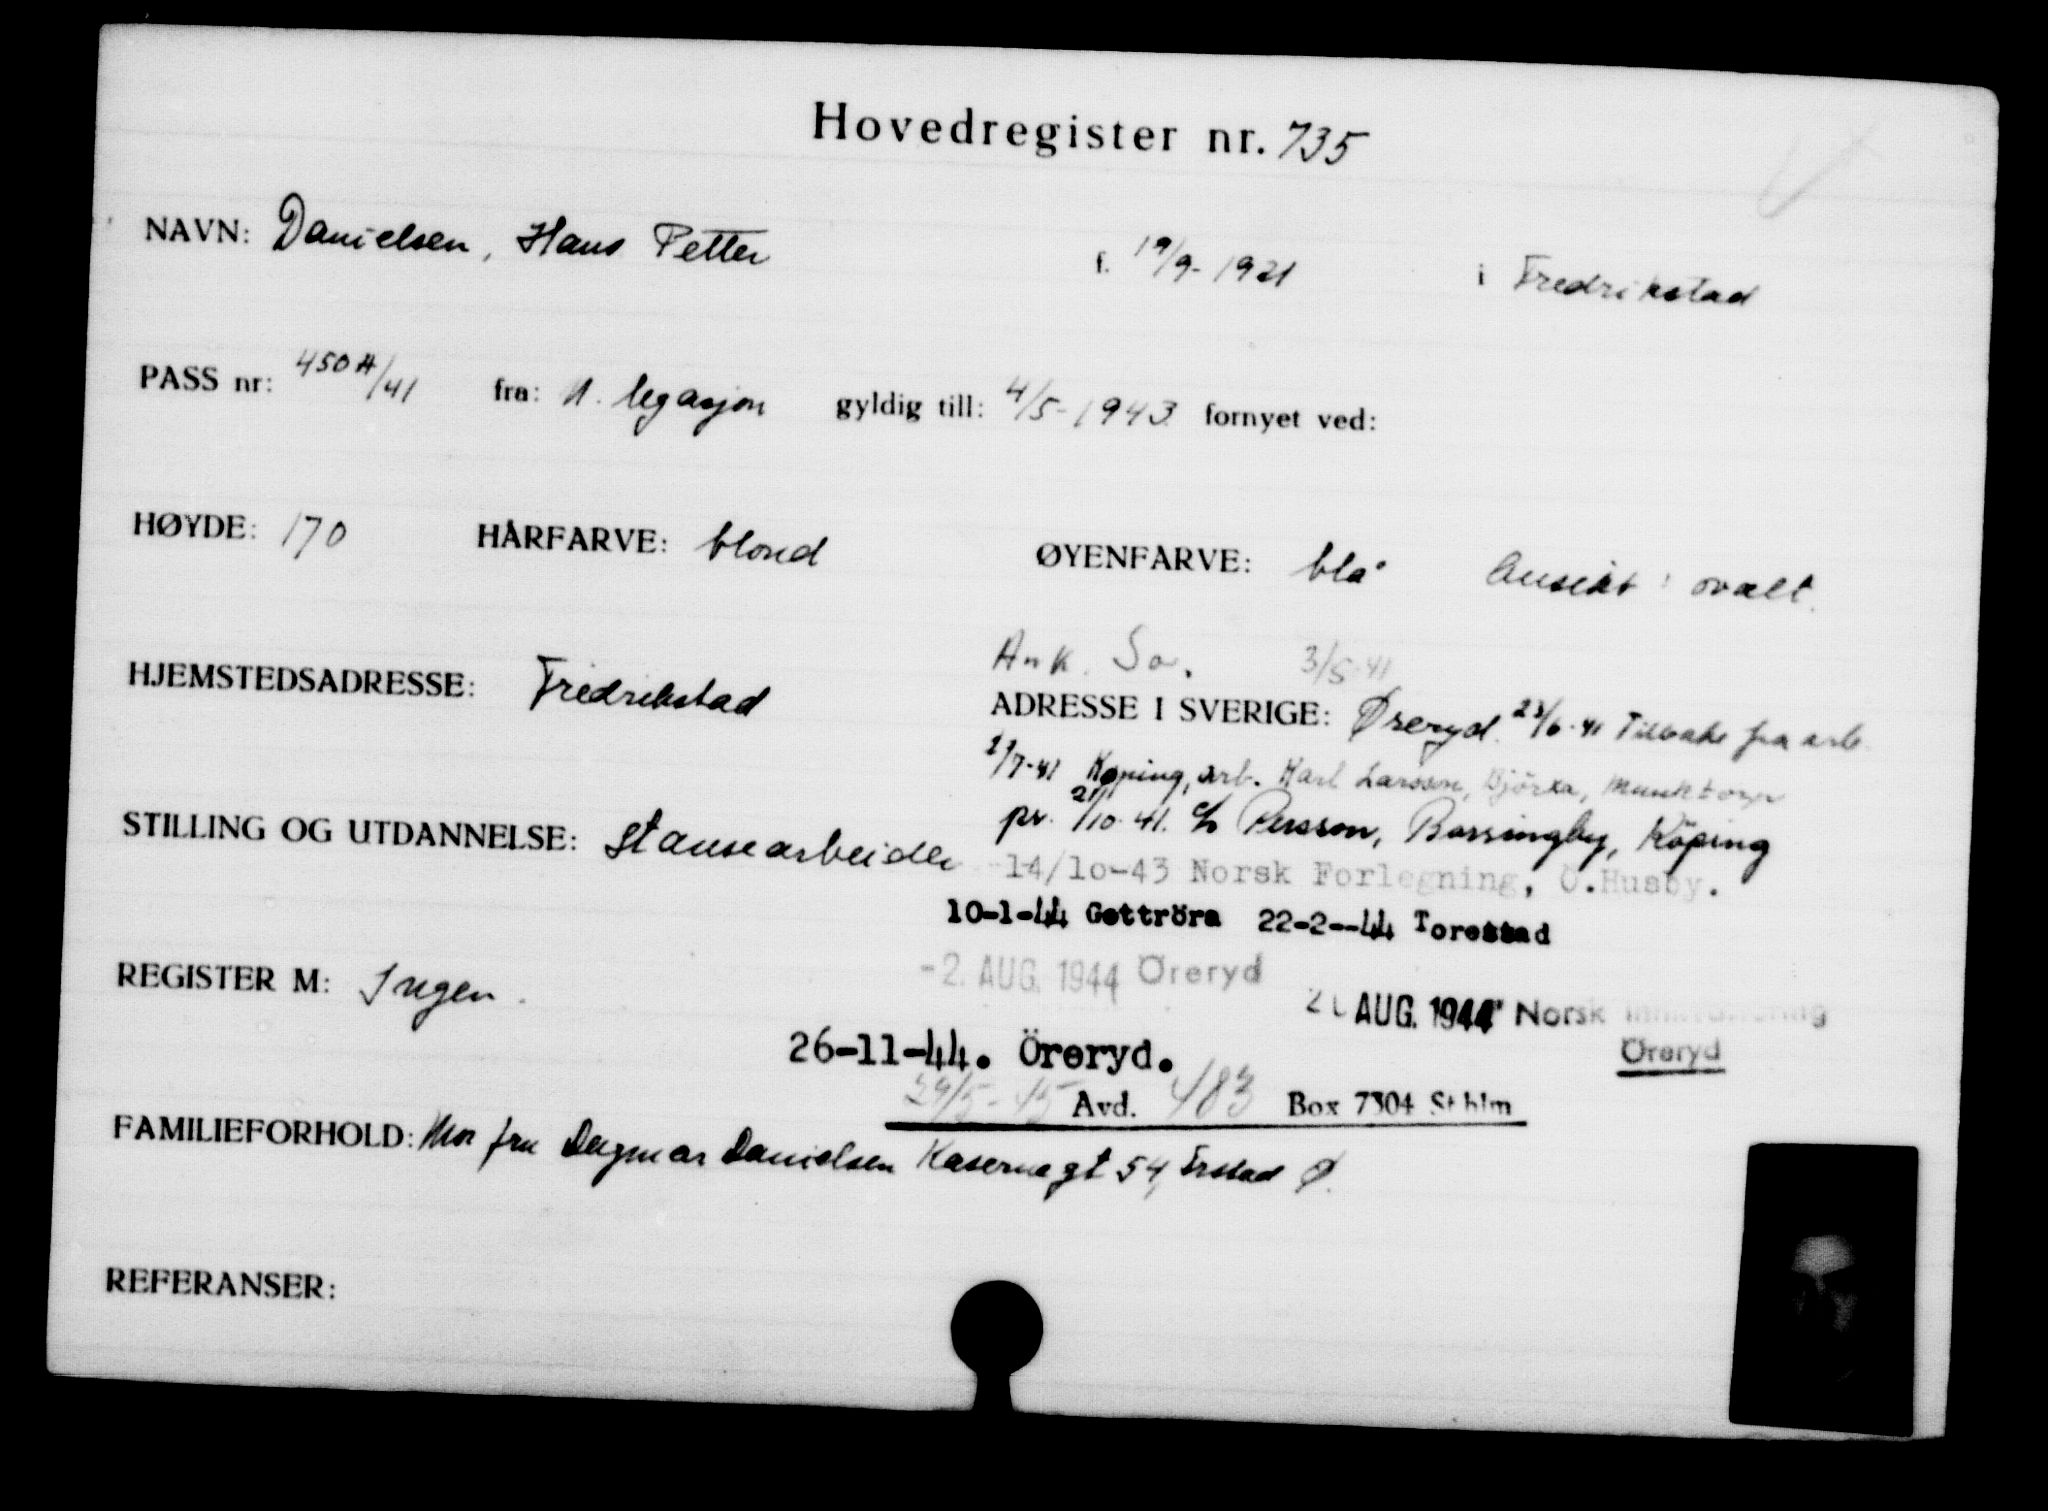 Hovedregister nr. 735
NAVN: Danielsen, Hans Petter f. 19/9-1921 i Fredrikstad
PASS nr: 450A/41 fra: N. legasjon gyldig till: 4/5-1943 fornyet ved:
HØYDE: 170 HÅRFARVE: blond ØYENFARVE: blå Ansikt: ovalt.
Ank. Sv. 3/5-41
HJEMSTEDSADRESSE: Fredrikstad ADRESSE I SVERIGE: Øreryd. 23/6-41 Tilbake fra arb.
/7-41 Køping, arb. Karl Larsson, Björxa, Munktorp
STILLING OG UTDANNELSE: Stansearbeider pr. 21/10-41. c/o Persson, Barsingby, Köping
14/10-43 Norsk Forlegning, Ö.Husby.
10-1-44 Gottröra 22-2--44 Torestad
-2. AUG. 1944 Öreryd
REGISTER M: Ingen.
AUG. 1944 Norsk
26-11-44. Öreryd. Öreryd
29/5-45 Avd. 483 Box 7304 Sthlm
FAMILIEFORHOLD: Mor fru Dagmar Danielsen Kasernegt 54, Frstad Ø.
REFERANSER: